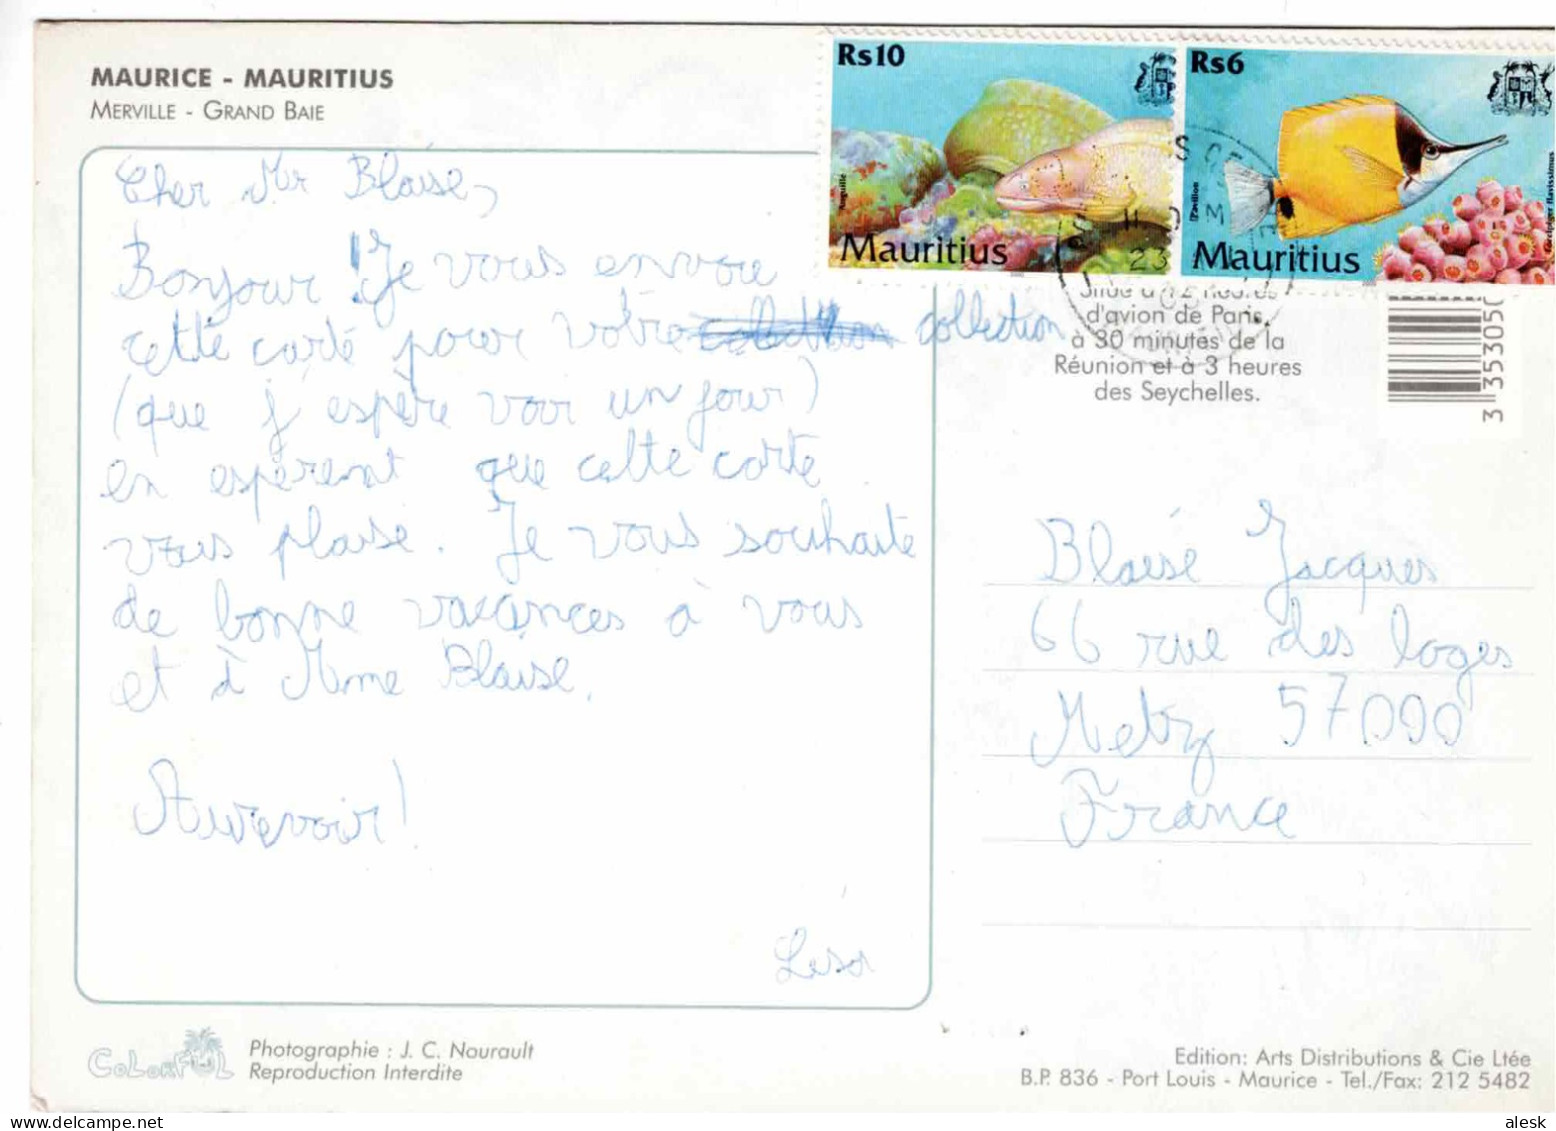 MAURICE - MAURITIUS
MERVILLE - GRAND BAIE
Cher Mr Blaise,
Bonjour ! Je vous envoie
cette carte pour votre collection
(que j'espère voir un jour)
en espérent que cette carte
vous plaise. Je vous souhaite
de bonne vacances à vous
et à Mme Blaise.
Aurevoir!
Lisa
Rs10
Anguille
Mauritius
Rs6
Pavillon
Forcipiger flavissimus
Mauritius
23
Situé à 12 heures
d'avion de Paris,
à 30 minutes de la
Réunion et à 3 heures
des Seychelles.
3 353050
Blaise Jacques
66 rue des loges
Metz 57000
France
COLORFUL
Photographie : J. C. Nourault
Reproduction Interdite
Edition: Arts Distributions & Cie Ltée
B.P. 836 - Port Louis - Maurice - Tel./Fax: 212 5482
alesk